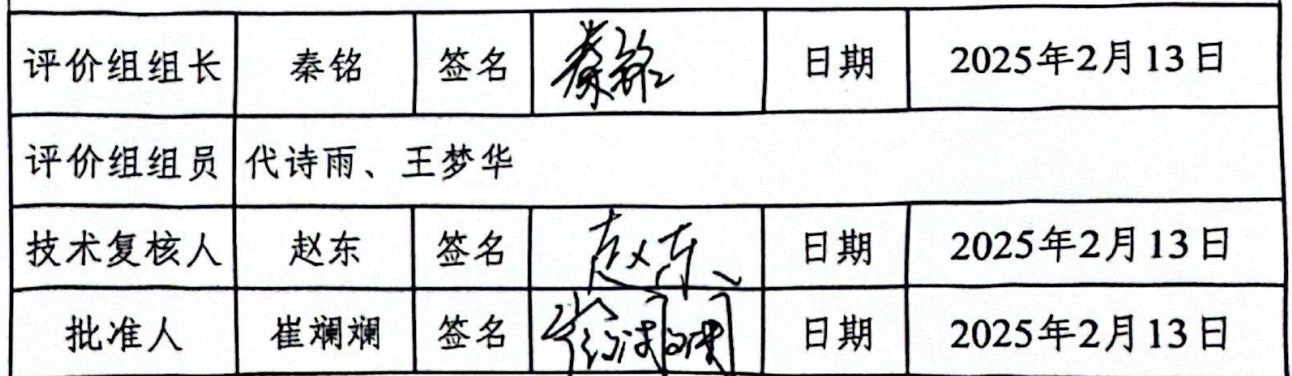 评价组组长 秦铭 签名 秦铭 日期 2025年2月13日
评价组组员 代诗雨、王梦华
技术复核人 赵东 签名 赵东 日期 2025年2月13日
批准人 崔斓斓 签名 日期 2025年2月13日